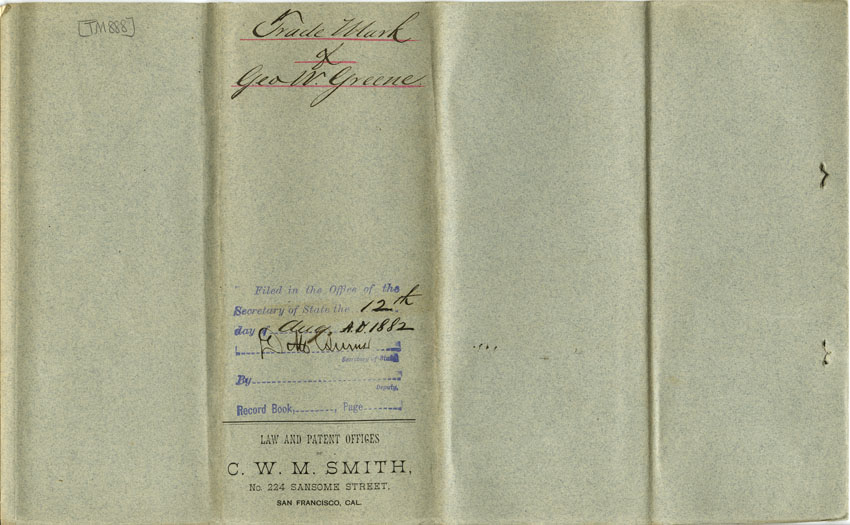 [TM888]
Trade Mark
of
Geo W. Greene
Filed in the Office of the
Secretary of State the 12th
day of Aug. A.D. 1882
Secretary of State
By
Deputy.
Record Book, , Page
LAW AND PATENT OFFICES
OF
C. W. M. SMITH,
No. 224 SANSOME STREET,
SAN FRANCISCO, CAL.